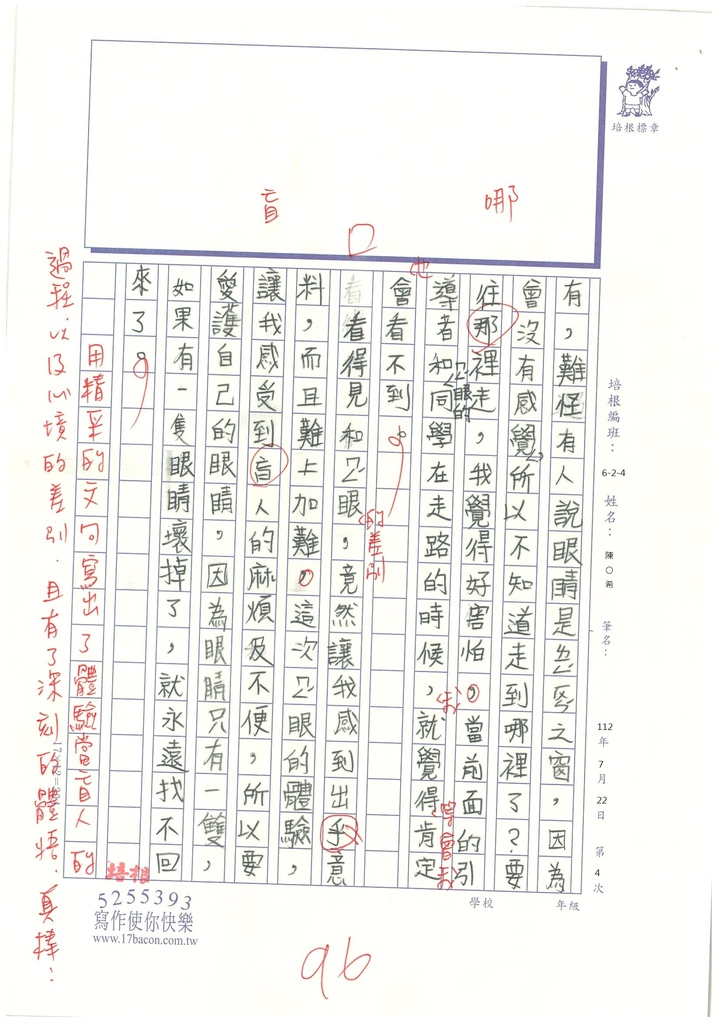 培根標章
哪
盲
有，難怪有人說眼睛是靈魂之窗，因為
會沒有感覺，所以不知道走到哪裡了？要
往那裡走，我覺得好害怕。當前面的引
導者和同學在走路的時候，就覺得肯定
會看不到。
看得見和ㄇㄥ眼，竟然讓我感到出乎意
料，而且難上加難。這次ㄇㄥ眼的體驗，
讓我感受到盲人的麻煩及不便，所以要
愛護自己的眼睛，因為眼睛只有一雙，
如果有一隻眼睛壞掉了，就永遠找不回
來了。
ㄇㄥ眼的
也
的差別
我
用精采的文句寫出了體驗當盲人的
過程，以及心境的差別，且有了深刻的體悟，真棒！
培根編班：6-2-4 姓名：陳○希 筆名：
112年7月22日 第4次
學校 年級
培根
5255393
寫作使你快樂
www.17bacon.com.tw
96